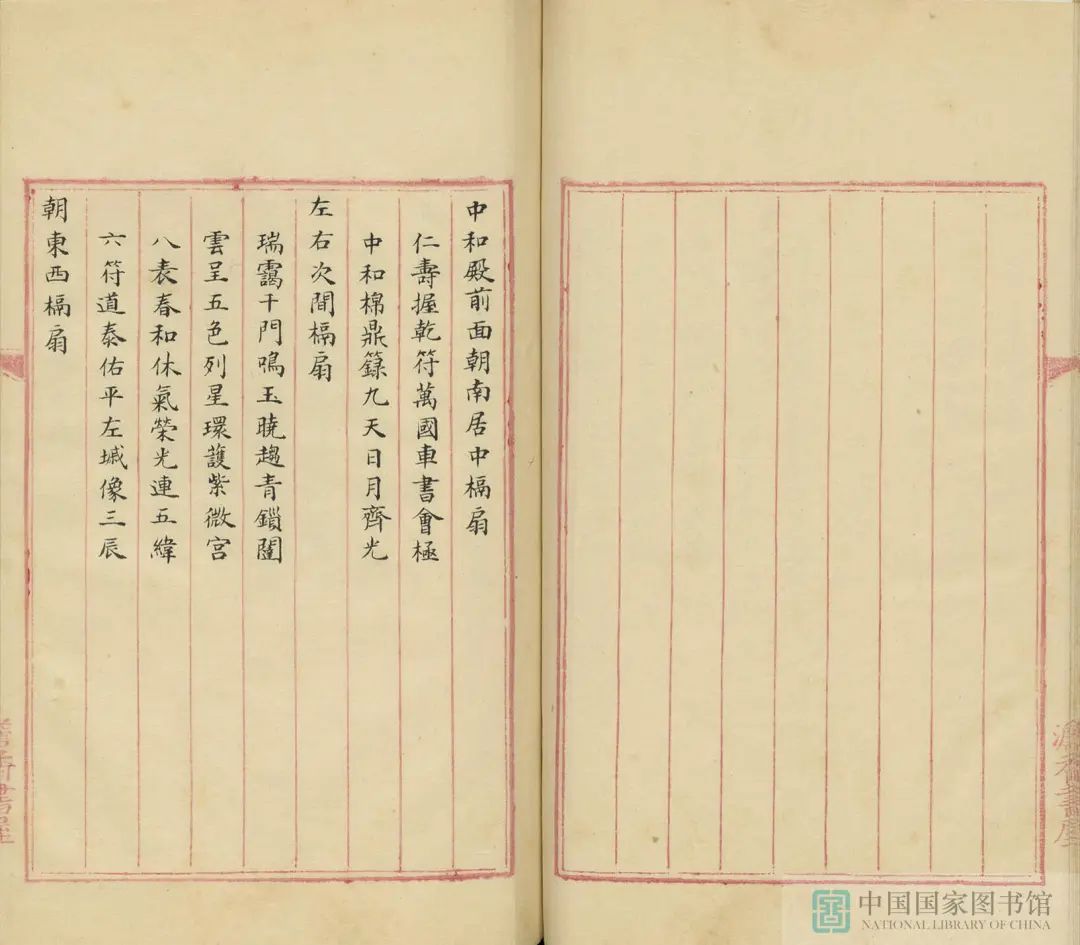 中和殿前面朝南居中槅扇
仁壽握乾符萬國車書會極
中和棉鼎籙九天日月齊光
左右次間槅扇
瑞靄千門鳴玉曉趨青鎖闥
雲呈五色列星環護紫微宮
八表春和休氣榮光連五緯
六符道泰佑平左墄像三辰
朝東西槅扇
中国国家图书馆
NATIONAL LIBRARY OF CHINA